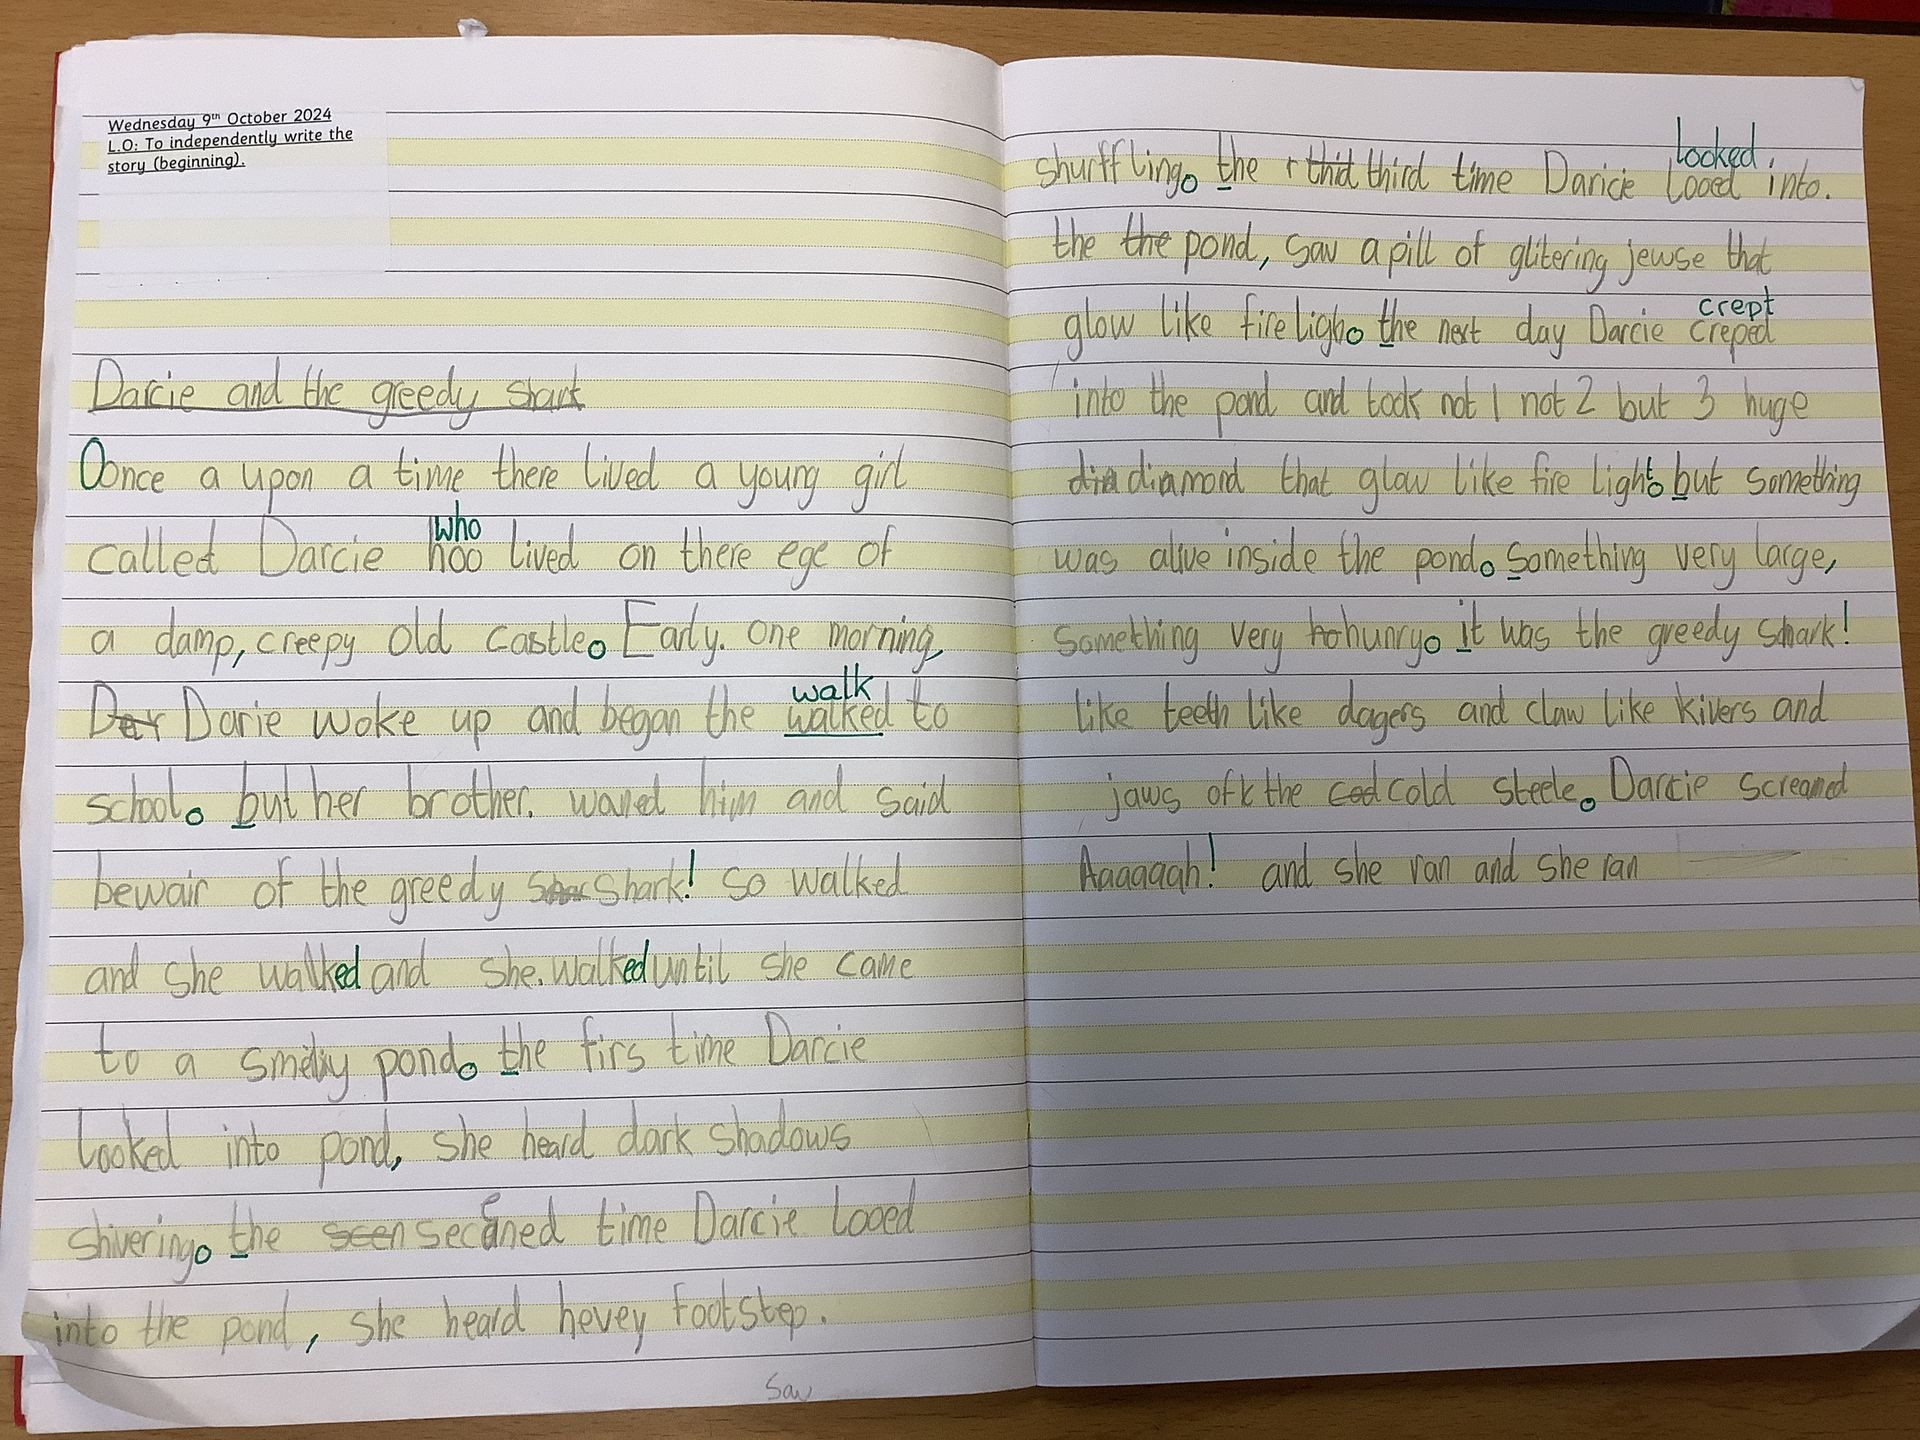 Wednesday 9th October 2024
L.O: To independently write the
story (beginning).
Darcie and the greedy shark
Oonce a upon a time there lived a young girl
who
called Darcie hoo lived on there ege of
a damp, creepy old castle. Early. one morning,
walk
Dar Darie woke up and began the walked to
school. but her brother. waned him and said
bewair of the greedy shar shark! so walked
and she walked and she. walked until she came
to a smelly pond. the firs time Darcie
looked into pond, she heard dark shadows
shivering. the seen secened time Darcie looed
into the pond, she heard hevey footstep.
Saw
looked
shurffling. the thid third time Daricie looed into.
the the pond, saw a pill of glitering jewse that
crept
glow like fire ligh. the next day Darcie creped
into the pond and took not 1 not 2 but 3 huge
dia diamond that glow like fire light. but something
was alive inside the pond. Something very large,
something very ho hunry. it was the greedy shark!
like teeth like dagers and claw like kivers and
jaws ofk the cod cold steele. Darcie screamd
Aaaaaah! and she ran and she ran